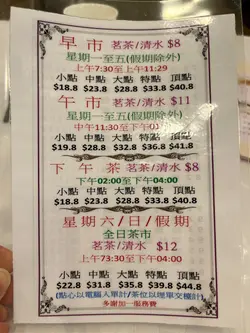 早市 茗茶/清水 $8
星期一至五(假期除外)
上午7:30至上午11:29
小點 中點 大點 特點 頂點
$18.8 $23.8 $28.8 $33.8 $40.8
午市 茗茶/清水 $11
星期一至五(假期除外)
中午11:30至下午0
小點 中點 大點 特點 頂點
$19.8 $28.8 $32.8 $36.8 $41.8
下午茶 茗茶/清水 $8
下午02:00至下午04:00
小點 中點 大點 特點 頂點
$18.8 $23.8 $28.8 $33.8 $40.8
星期六/日/假期
全日茶市
茗茶/清水 $12
上午73:30至下午04:00
小點 中點 大點 特點 頂點
$22.8 $31.8 $35.8 $39.8 $44.8
(點心以電腦人單計/茶位以埋單交檯計)
多謝加一服務費